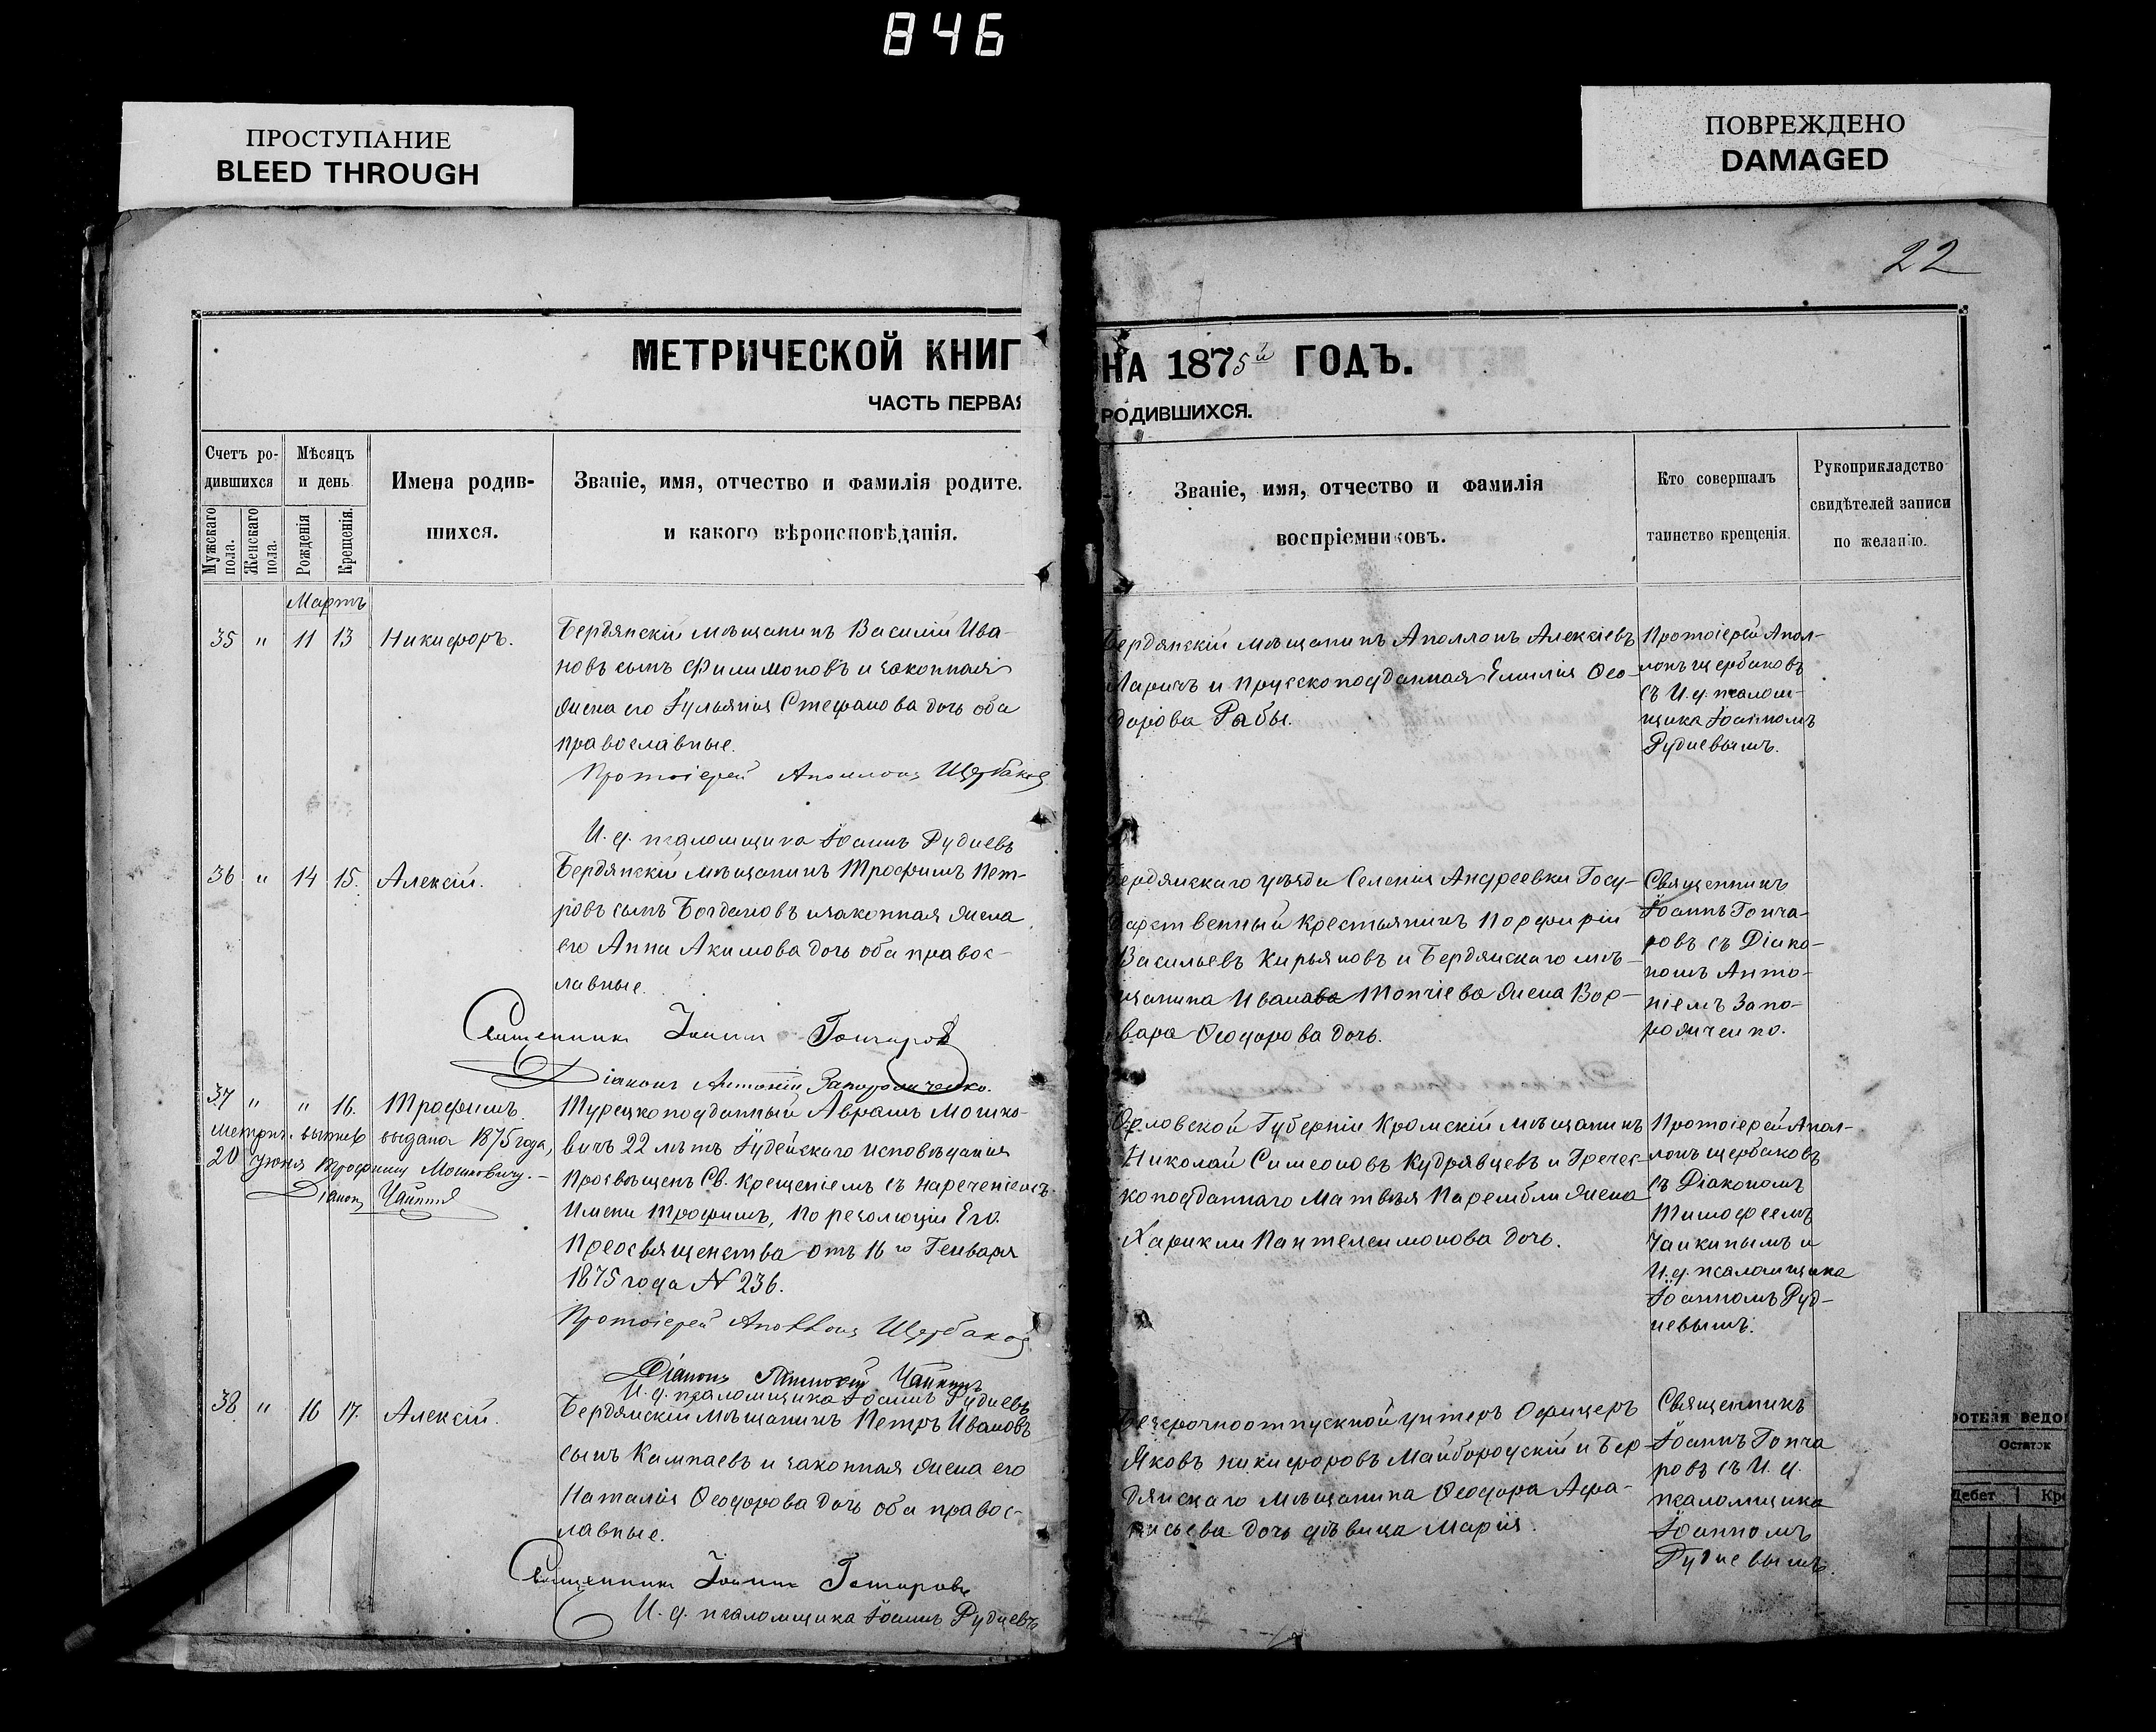 846
ПРОСТУПАНИЕ
BLEED THROUGH
ПОВРЕЖДЕНО
DAMAGED
22
МЕТРИЧЕСКОЙ КНИГ
ЧАСТЬ ПЕРВАЯ
НА 1875й ГОДЪ.
РОДИВШИХСЯ.
Счетъ ро-
дившихся
Мужскаго пола.
Женскаго пола.
Мѣсяцъ
и день
Рожденія
Крещенія.
Имена родив-
шихся.
Званіе, имя, отчество и фамилія родите.
и какого вѣроисповѣданія.
Званіе, имя, отчество и фамилія
воспріемниковъ.
Кто совершалъ
таинство крещенія.
Рукоприкладство
свидѣтелей записи
по желанію.
Мартъ
35 " 11 13 Никифоръ.
Бердянскій мѣщанинъ Василій Ива-
новъ сынъ Филимоновъ и законная
жена его Іульянія Стефанова дочь оба
православные.
Протоіерей Аполлонъ Щербаковъ
И. д. псаломщика Іоаннъ Рудневъ
Бердянскій мѣщанинъ Аполлонъ Алексіевъ
Ларичъ и Прусскоподданная Емилія Ѳео-
дорова Рабы.
Протоіерей Апол-
лонъ Щербаковъ
съ И. д. псалом-
щика Іоанномъ
Рудневымъ.
36 " 14 15. Алексій.
Бердянскій мѣщанинъ Трофимъ Пет-
ровъ сынъ Богдановъ и законная жена
его Анна Акимова дочь оба правос-
лавные.
Священникъ Іоаннъ Гончаровъ
Діаконъ Антоній Запорожченко.
Бердянскаго уѣзда Селенія Андреевки Госу-
дарственный крестьянинъ Порфирій
Васильевъ Кирьяновъ и Бердянскаго мѣ-
щанина Ивана Топчіева жена Вар-
вара Ѳеодорова дочь.
Священникъ
Іоаннъ Гонча-
ровъ съ Діако-
номъ Анто-
ніемъ Запо-
рожченко.
37 " " 16. Трофимъ.
Метрич. выпис выдана 1875 года,
20 Іюня Трофиму Мошковичу.-
Діаконъ Чайкинъ
Турецкоподданный Аврамъ Мошко-
вичъ 22 лѣтъ Іудейскаго исповѣданія
Просвѣщенъ Св. Крещеніемъ съ нареченіемъ
Имени Трофимъ, по резолюціи Его
Преосвященства отъ 16го Генваря
1875 года N 236.
Протоіерей Аполлонъ Щербаковъ
Діаконъ Тимоѳей Чайкинъ
И. д. псаломщика Іоаннъ Рудневъ
Орловской Губерніи Кромскій мѣщанинъ
Николай Симеоновъ Кудрявцевъ и Гречес-
коподданнаго Матвѣя Парембли жена
Харикли Пантелеимонова дочь.
Протоіерей Апол-
лонъ Щербаковъ
съ Діакономъ
Тимофеемъ
Чайкинымъ и
И. д. псаломщика
Іоанномъ Руд-
невымъ.
38 " 16 17. Алексій.
Бердянскій мѣщанинъ Петръ Ивановъ
сынъ Кампаевъ и законная жена его
Наталія Ѳеодорова дочь оба правос-
лавные.
Священникъ Іоаннъ Гончаровъ
И. д. псаломщика Іоаннъ Рудневъ
Безсрочноотпускной унтеръ Офицеръ
Яковъ Никифоровъ Майбородскій и Бер-
дянскаго мѣщанина Ѳеодора Афа-
насьева дочь дѣвица Марія.
Священникъ
Іоаннъ Гонча
ровъ съ И. д.
псаломщика
Іоанномъ
Рудневымъ.
роткая ведо
Остаток
Дебет
Кре